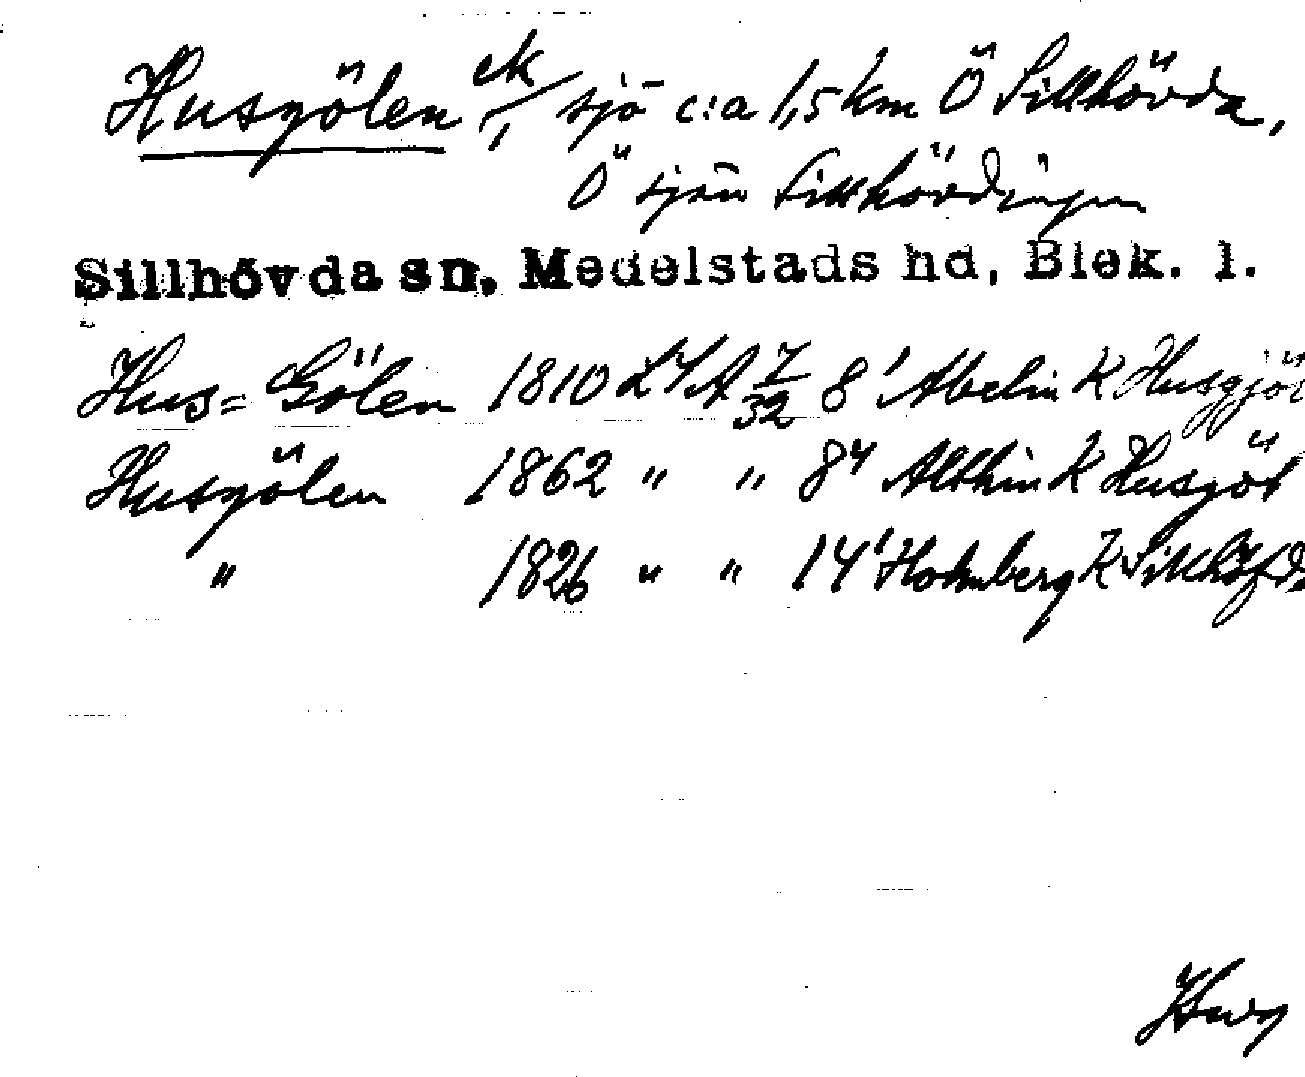 Husgölen ek/, sjö c:a 1,5 km Ö Sillhövda,
Ö sjön Sillhövdingen
Sillhövda sn, Medelstads hd, Blek. l.
Hus= Gölen 1810 LSA 7/32 8' Abelin K Husgjöl
Husgölen 1862 " " 84 Althin K Husgöl
" 1826 " " 14' Holmberg K Sillhöfda